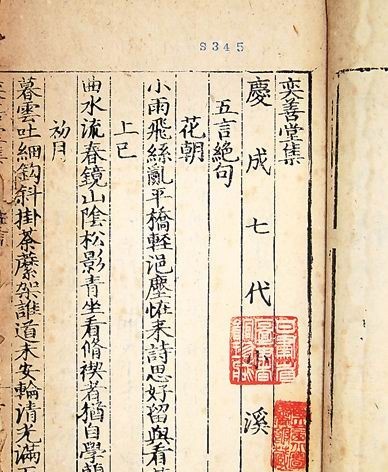 S345
奕善堂集
慶成七代小溪
五言絕句
花朝
小雨飛絲亂平橋輕浥塵恠来詩思好留與看
上巳
曲水流春鏡山陰松影青坐看脩禊者猶自學
初月
暮雲吐細鈎斜掛荼蘼架誰道未安輪清光滿